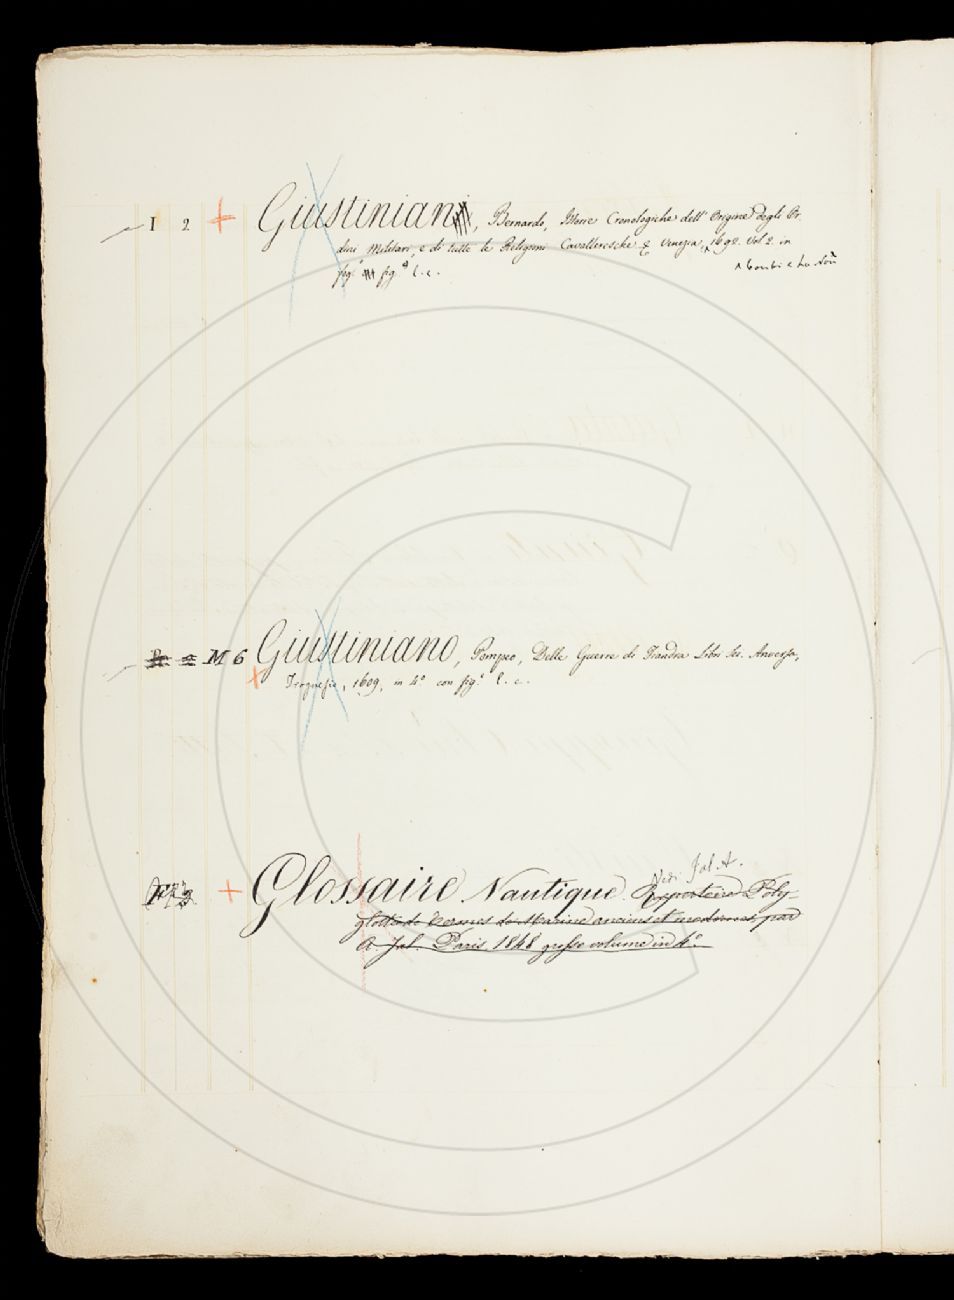 I 2 + Giustinian, Bernardo, Istorie Cronologiche dell' Origine degli Or-
dini Militari, e di tutte le Religioni Cavalleresche & Venezia, ^ 1692. Vol 2. in
fog.º fig.º l. c. ^ Combi e La Noù
M 6 Giustiniano, Pompeo, Delle Guerre di Fiandra Libri Sei. Anversa,
+ Trognesio, 1609, in 4º con fig.e l. c.
Vedi Jal. A.
+ Glossaire Nautique. Repertoire Poly-
glotte de Termes de Marine anciens et modernes, par
A. Jal. Paris 1848 grosse volume in 4º.